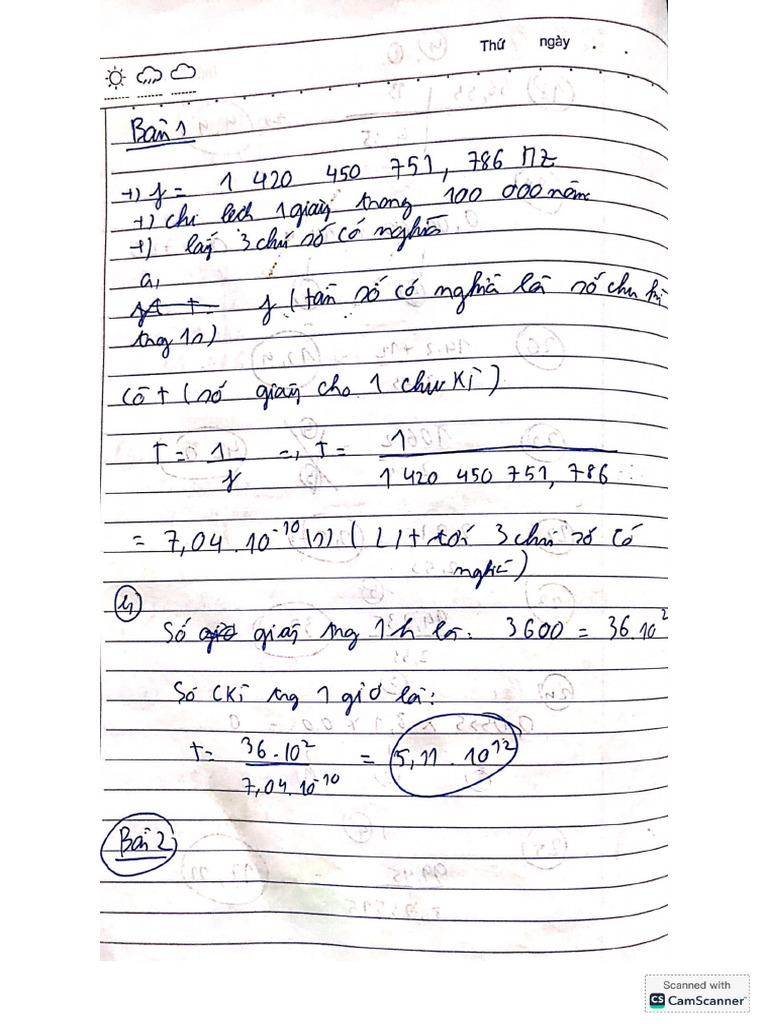 Thứ ngày . .
Bài 1
+) f = 1 420 450 751, 786 HZ
+) chỉ lệch 1 giây trong 100 000 năm
+) lấy 3 chữ số có nghĩa
a,
f (tần số có nghĩa là số chu kì
trng 1s)
Có T (số giây cho 1 chu Kì)
T = 1/f => T = 1/1 420 450 751, 786
= 7,04.10^-10 (s) ( LT tới 3 chữ số có
nghĩa)
b,
Số giây trng 1h là: 3600 = 36.10^2
Số CKì trng 1 giờ là:
t = 36.10^2/7,04.10^-10 = 5,11.10^12
Bài 2
Scanned with
CS CamScanner